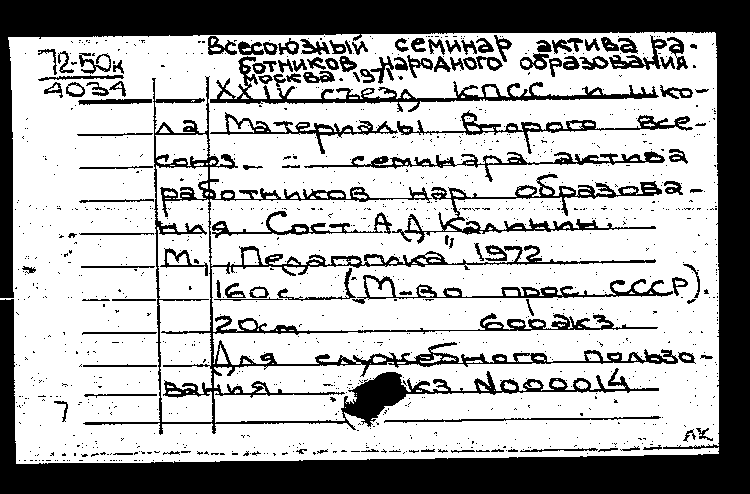 72-50к
4034
Всесоюзный семинар актива ра-
ботников народного образования.
Москва. 1971.
XXIV съезд КПСС и шко-
ла Материалы Второго Все-
союз. - семинара актива
работников нар. образова-
ния. Сост. А.Д. Калинин.
М., "Педагогика", 1972.
160с. (М-во прос. СССР).
20см. 600экз.
Для служебного пользо-
вания. кз. N000014
7